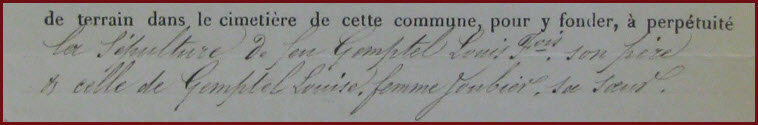 de terrain dans le cimetière de cette commune, pour y fonder, à perpétuité
la Sépulture de feu Gemptel Louis Fçois son père
& celle de Gemptel Louise, femme Joubier, sa sœur.